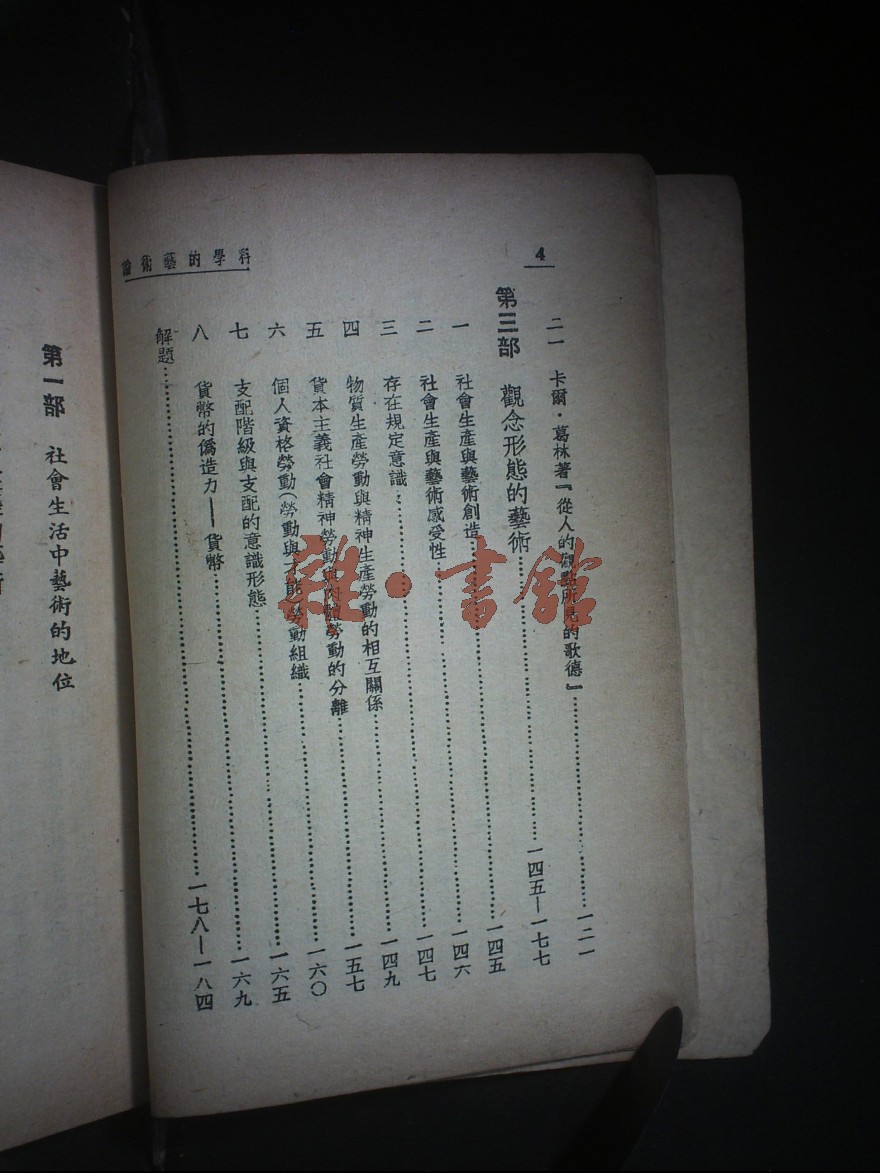 科學的藝術論
4
二一 卡爾·葛林著『從人的觀點所見的歌德』……一二一
第三部 觀念形態的藝術……一四五—一七七
一 社會生產與藝術創造……一四五
二 社會生產與藝術感受性……一四六
三 存在規定意識……一四七
四 物質生產勞動與精神生產勞動的相互關係……一四九
五 貨本主義社會精神勞動與肉體勞動的分離……一五七
六 個人資格勞動(勞動與才能)勞動組織……一六〇
七 支配階級與支配的意識形態……一六五
八 貨幣的僞造力——貨幣……一六九
解題……一七八—一八四
第一部 社會生活中藝術的地位
雜·書館